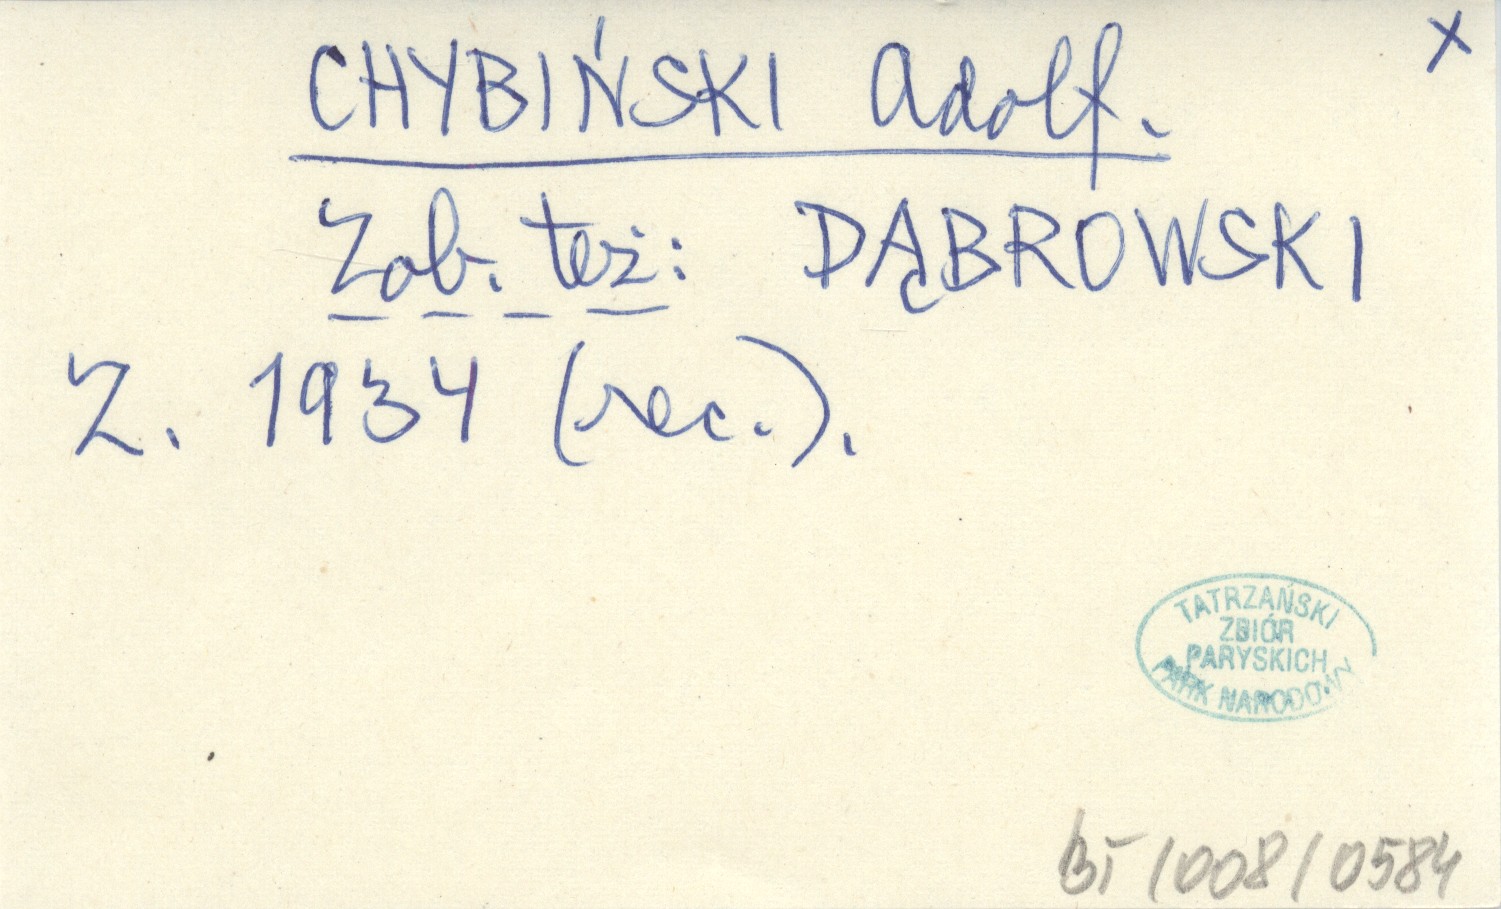 CHYBIŃSKI Adolf.
x
Zob. też: DĄBROWSKI
Z. 1934 (rec.).
TATRZAŃSKI
ZBIÓR
PARYSKICH
PARK NARODOWY
BT/008/0584